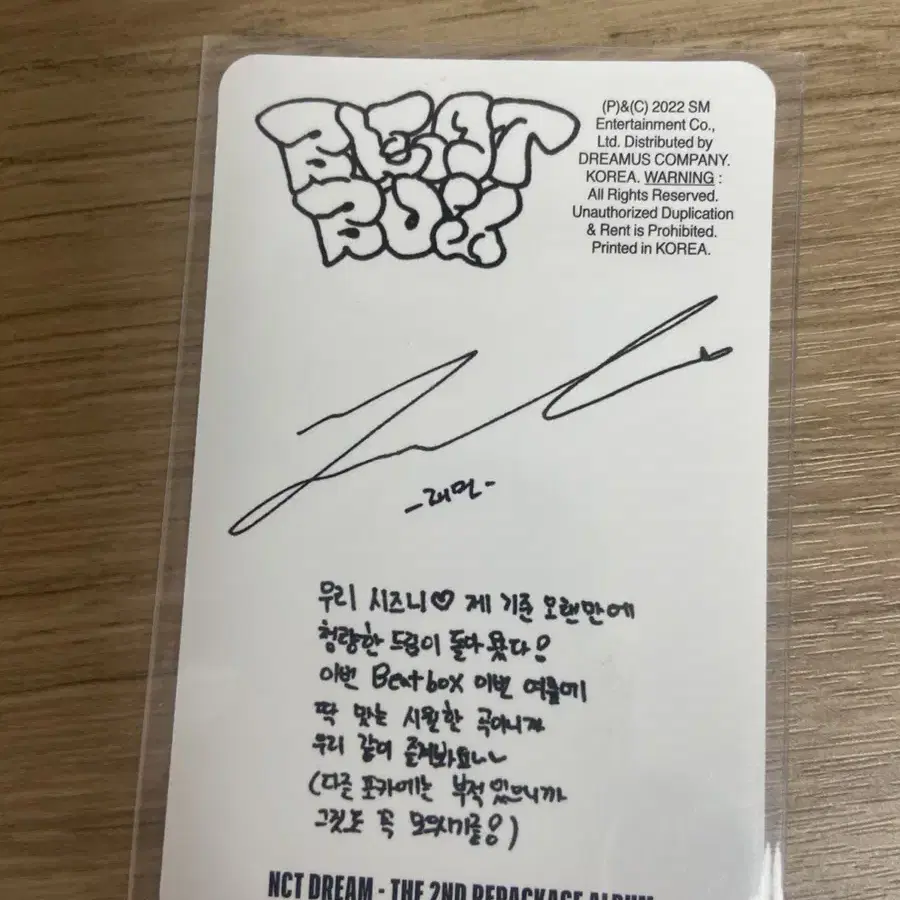 BEAT
BOX
(P)&(C) 2022 SM
Entertainment Co.,
Ltd. Distributed by
DREAMUS COMPANY.
KOREA. WARNING :
All Rights Reserved.
Unauthorized Duplication
& Rent is Prohibited.
Printed in KOREA.
-재민-
우리 시즈니♡ 제 기준 오랜만에
청량한 드림이 돌아왔다!
이번 Beatbox 이번 여름에
딱 맞는 시원한 곡이니까
우리 같이 즐겨봐요~~
(다른 포카에는 부적 있으니까
그것도 꼭 모으시기를!)
NCT DREAM - THE 2ND REPACKAGE ALBUM